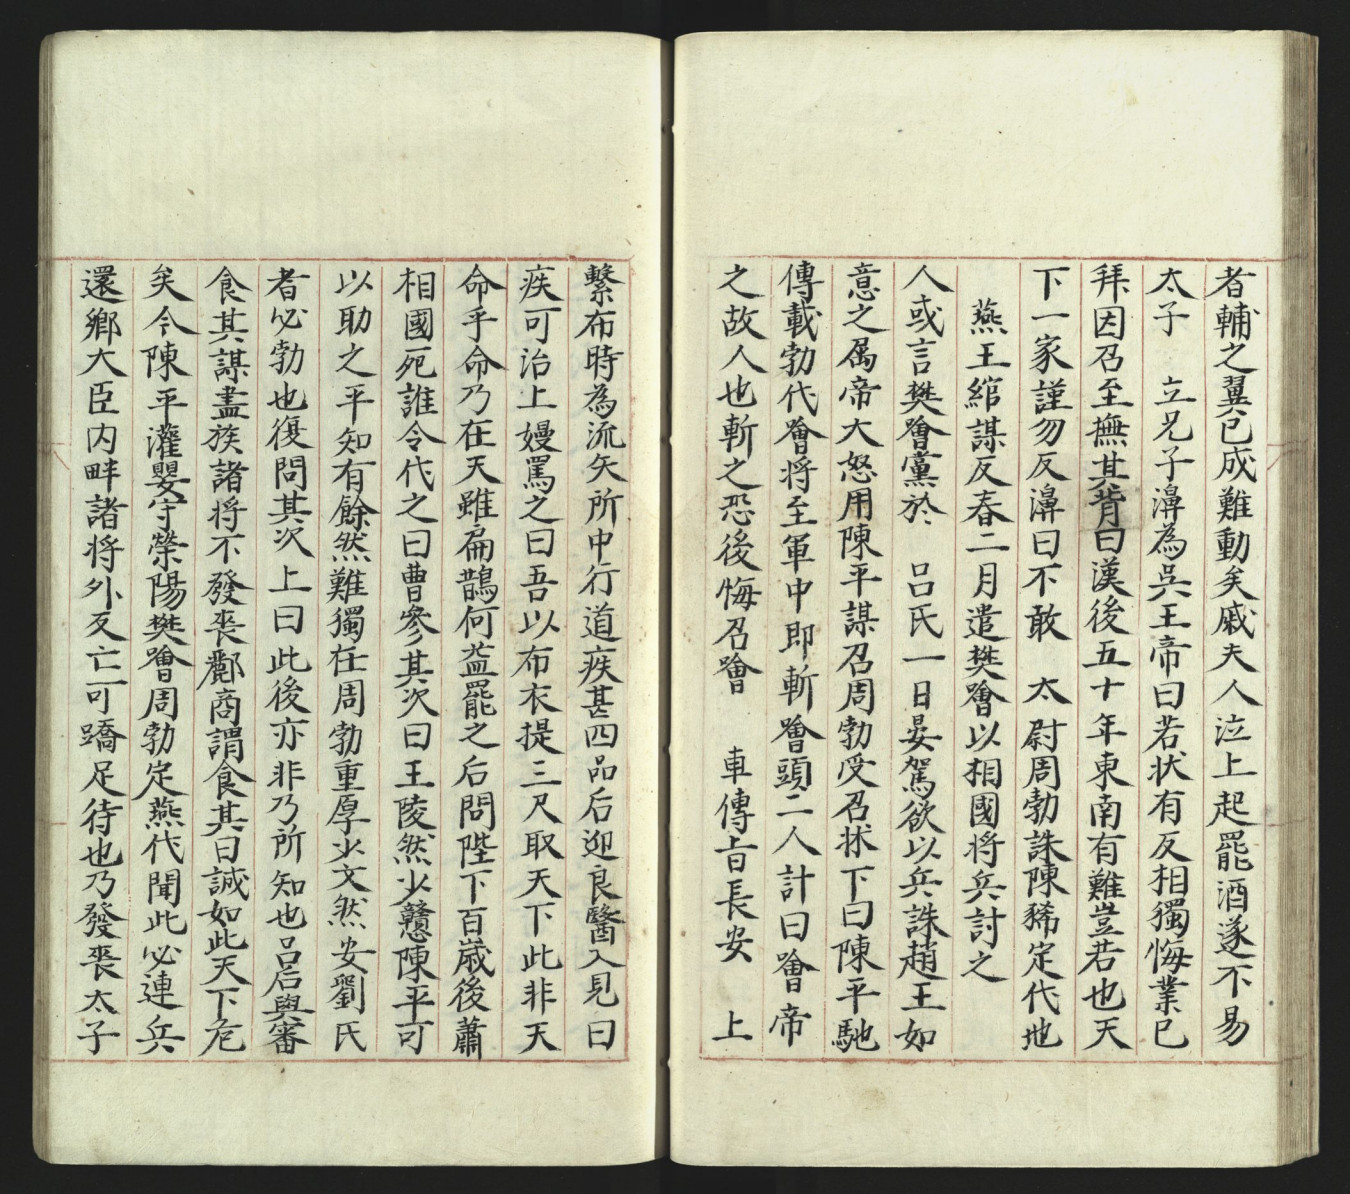 者輔之翼已成難動矣戚夫人泣上起罷酒遂不易
太子　立兄子濞為吳王帝曰若状有反相獨悔業已
拜因召至撫其背曰漢後五十年東南有難豈若也天
下一家謹勿反濞曰不敢　太尉周勃誅陳豨定代地
燕王綰謀反春二月遣樊噲以相國將兵討之
人或言樊噲黨於　呂氏一日晏駕欲以兵誅趙王如
意之属帝大怒用陳平謀召周勃受召牀下曰陳平馳
傳載勃代噲将至軍中即斬噲頭二人計曰噲帝
之故人也斬之恐後悔召噲　車傳旨長安　上
繫布時為流矢所中行道疾甚四品后迎良醫入見曰
疾可治上嫚罵之曰吾以布衣提三尺取天下此非天
命乎命乃在天雖扁鵲何益罷之后問陛下百歲後蕭
相國死誰令代之曰曹參其次曰王陵然少戇陳平可
以助之平知有餘然難獨任周勃重厚少文然安劉氏
者必勃也復問其次上曰此後亦非乃所知也呂后與審
食其謀盡族諸将不發喪酈商謂食其曰誠如此天下危
矣今陳平灌嬰守滎陽樊噲周勃定燕代聞此必連兵
還鄉大臣内畔諸将外反亡可蹻足待也乃發喪太子